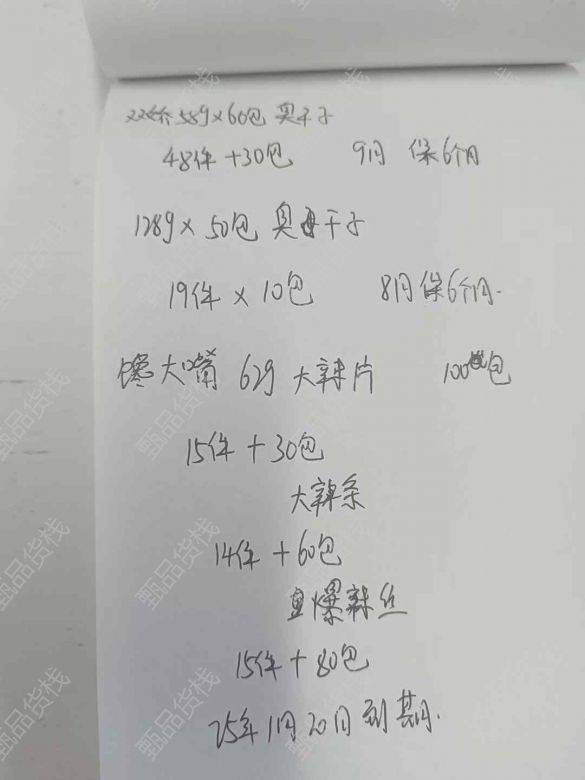 589×60包 臭干子
48件+30包 9月 保6个月
128g×50包 臭干子
19件×10包 8月保6个月.
馋大嘴 62g 大辣片 100包
15件+30包
大辣条
14件+60包
直爆辣丝
15件+80包
25年1月20日到其月.
甄品货栈